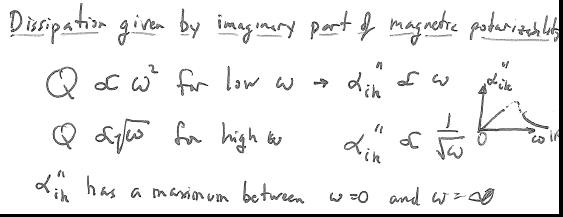 Dissipation given by imaginary part of magnetic polarizability
Q ∝ ω² for low ω → α_ik'' ∝ ω
α_ik''
Q ∝ √ω for high ω α_ik'' ∝ 1/√ω
0 ω
α_ik'' has a maximum between ω=0 and ω=∞